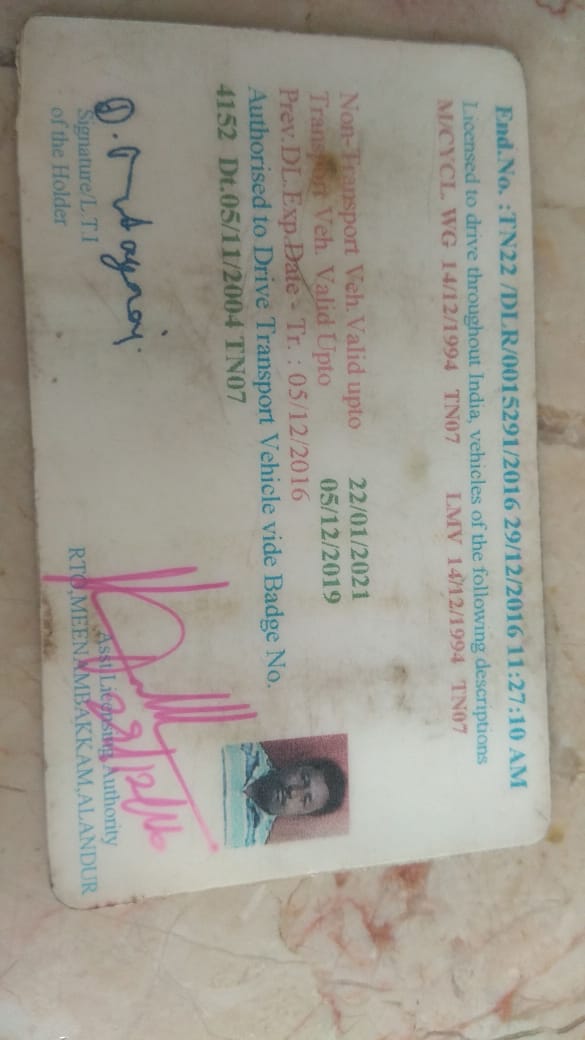 End.No. :TN22 /DLR/0015291/2016 29/12/2016 11:27:10 AM
Licensed to drive throughout India, vehicles of the following descriptions
M/CYCL. WG 14/12/1994 TN07 LMV 14/12/1994 TN07
Non-Transport Veh.Valid upto 22/01/2021
Transport Veh. Valid Upto 05/12/2019
Prev.DL.Exp.Date - Tr. : 05/12/2016
Authorised to Drive Transport Vehicle vide Badge No.
4152 Dt.05/11/2004 TN07
Signature/L.T.I
of the Holder
29/12/16
Asst.Licensing Authority
RTO,MEENAMBAKKAM,ALANDUR